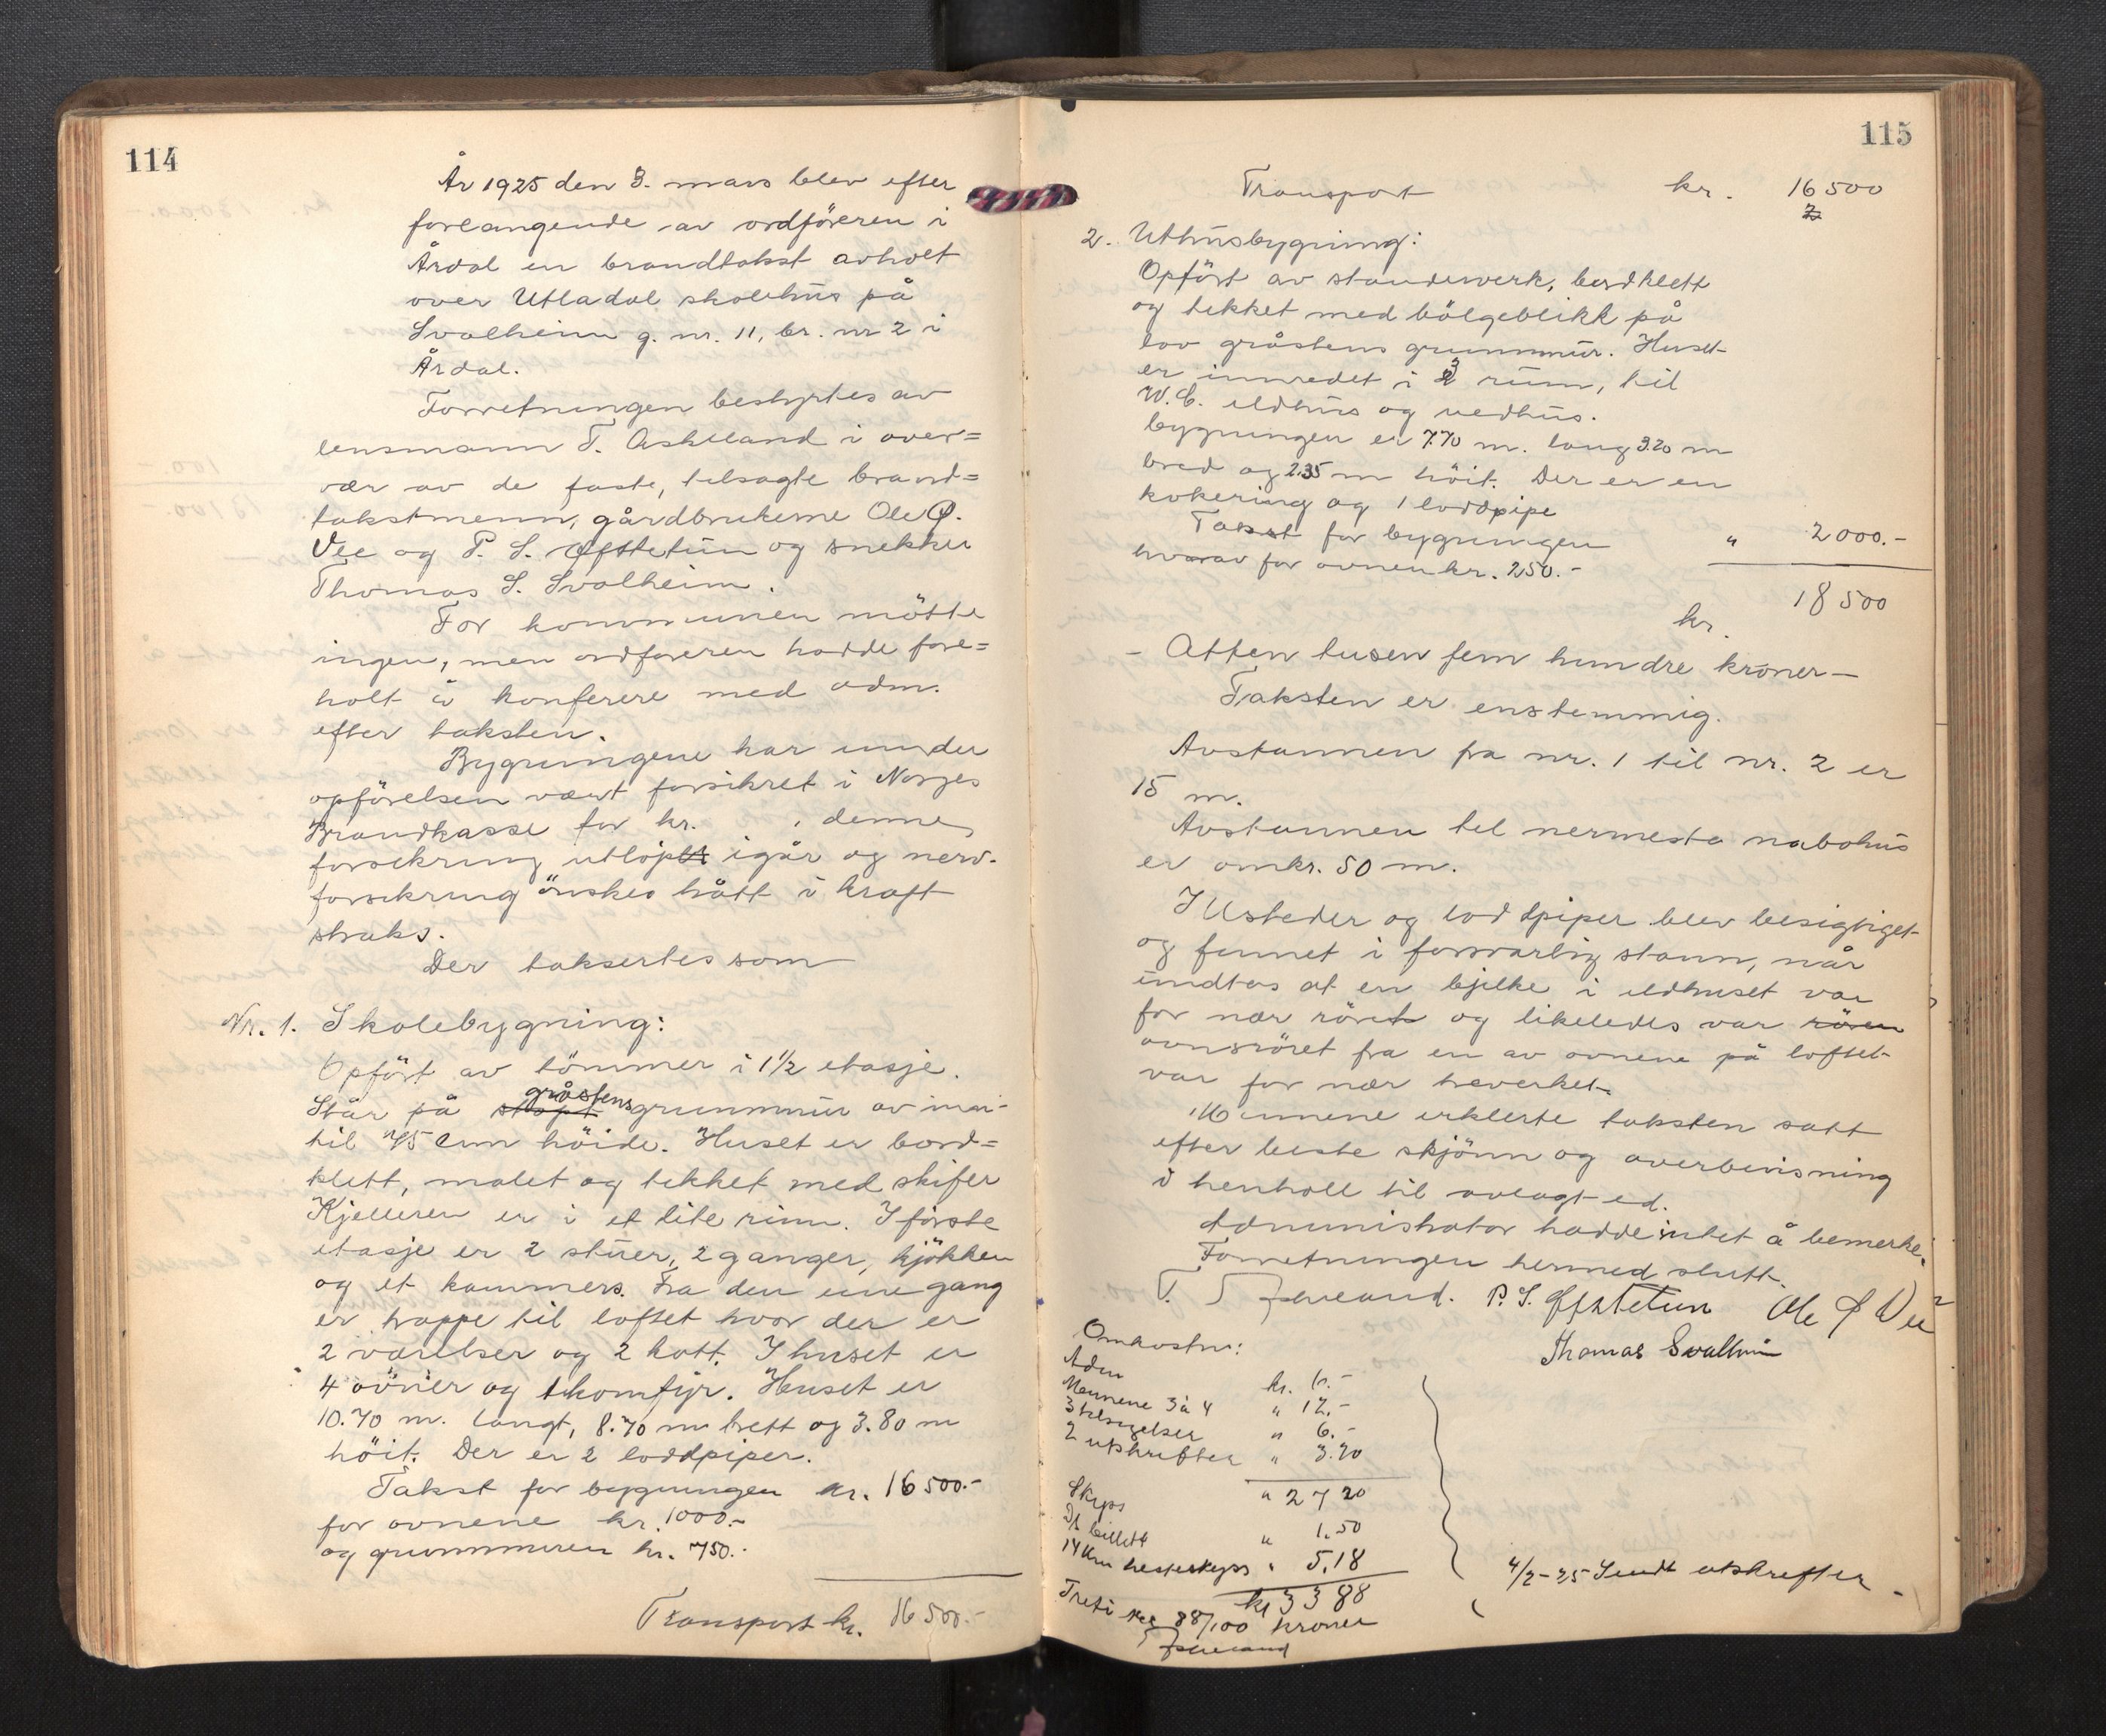 114
År 1925 den 3. mars blev efter
forlangende av ordföreren i
Årdal en brandtakst avholt
over Utladal skolehus på
Svalheim g. nr. 11, br. nr 2 i
Årdal.
Forretningen bestyrtes av
lensmann T. Askeland i over=
vær av de faste, tilsagte brand=
takstmenn, gårdbrukerne Ole Ø.
Vee og P. S. Øfstetun og snekker
Thomas S. Svalheim.
For kommunen mötte
ingen, men ordföreren hadde fore=
holt å konferere med adm.
efter taksten.
Bygningene har under
opförelsen vært forsikret i Norges
Brandkasse for kr. , denne
forsikring utlöpt igår og nerv.
forsikring önskes hått i kraft
straks.
Der taksertes som
Nr. 1. Skolebygning:
Opfört av tömmer i 1 1/2 etasje.
Står på stöpt gråstens grunnmur av inn-
til 75 cm höide. Huset er bord=
klett, malet og tekket med skifer
Kjelleren er i et lite rum. I förste
etasje er 2 stuer, 2 ganger, kjökken
og et kammers. Fra den ene gang
er trappe til loftet hvor der er
2 værelser og 2 kott. I huset er
4 ovner og 1 komfyr. Huset er
10.70 m. langt, 8.70 m brett og 3.80 m
höit. Der er 2 loddpiper.
Takst for bygningen kr. 16500.-
for ovnene kr. 1000.-
og grunnmuren kr. 750.-
Transport kr. 16500.-
115
Transport kr. 16500
2. Uthusbygning:
Opfört av standerverk, bordklett
og tekket med bölgeblikk på
lav gråstens grunnmur. Huset
er innredet i 3 rum, til
W.C. eldhus og vedhus.
bygningen er 7.70 m. lang 3.20 m
bred og 2.35 m höit. Der er en
kokering og 1 loddpipe
Takst for bygningen " 2000.-
hvorav for ovnen kr. 250.-
kr. 18500
- Atten tusen fem hundre kroner-
Taksten er enstemmig.
Avstannen fra nr. 1 til nr. 2 er
15 m.
Avstannen til nermeste nabohus
er omkr. 50 m.
Ildsteder og loddpiper blev besigtiget
og funnet i forsvarlig stann, når
undtas at en bjelke i eldhuset var
for nær röret og likeledes var rören
ovnsröret fra en av ovnene på loftet
var for nær treverket.
Mennene erklerte taksten satt
efter beste skjönn og overbevisning
i henholl til avlagt ed.
Administrator hadde intet å bemerke.
Forretningen hermed slutt.
T. Askeland. P. S. Øfstetun Ole Ø Vee
Thomas Svalheim
Omkostn:
Adm kr. 6.-
Mennene 3 à 4 " 12.-
3 tilsigelser " 6.-
2 utskrifter " 3.20
" 27 20
Skyss
D/s billett " 1.50
14 km hesteskyss " 5.18
kr 33 88
Treti tre 88/100 kroner
Askeland
4/3-25 Sendt utskrifter